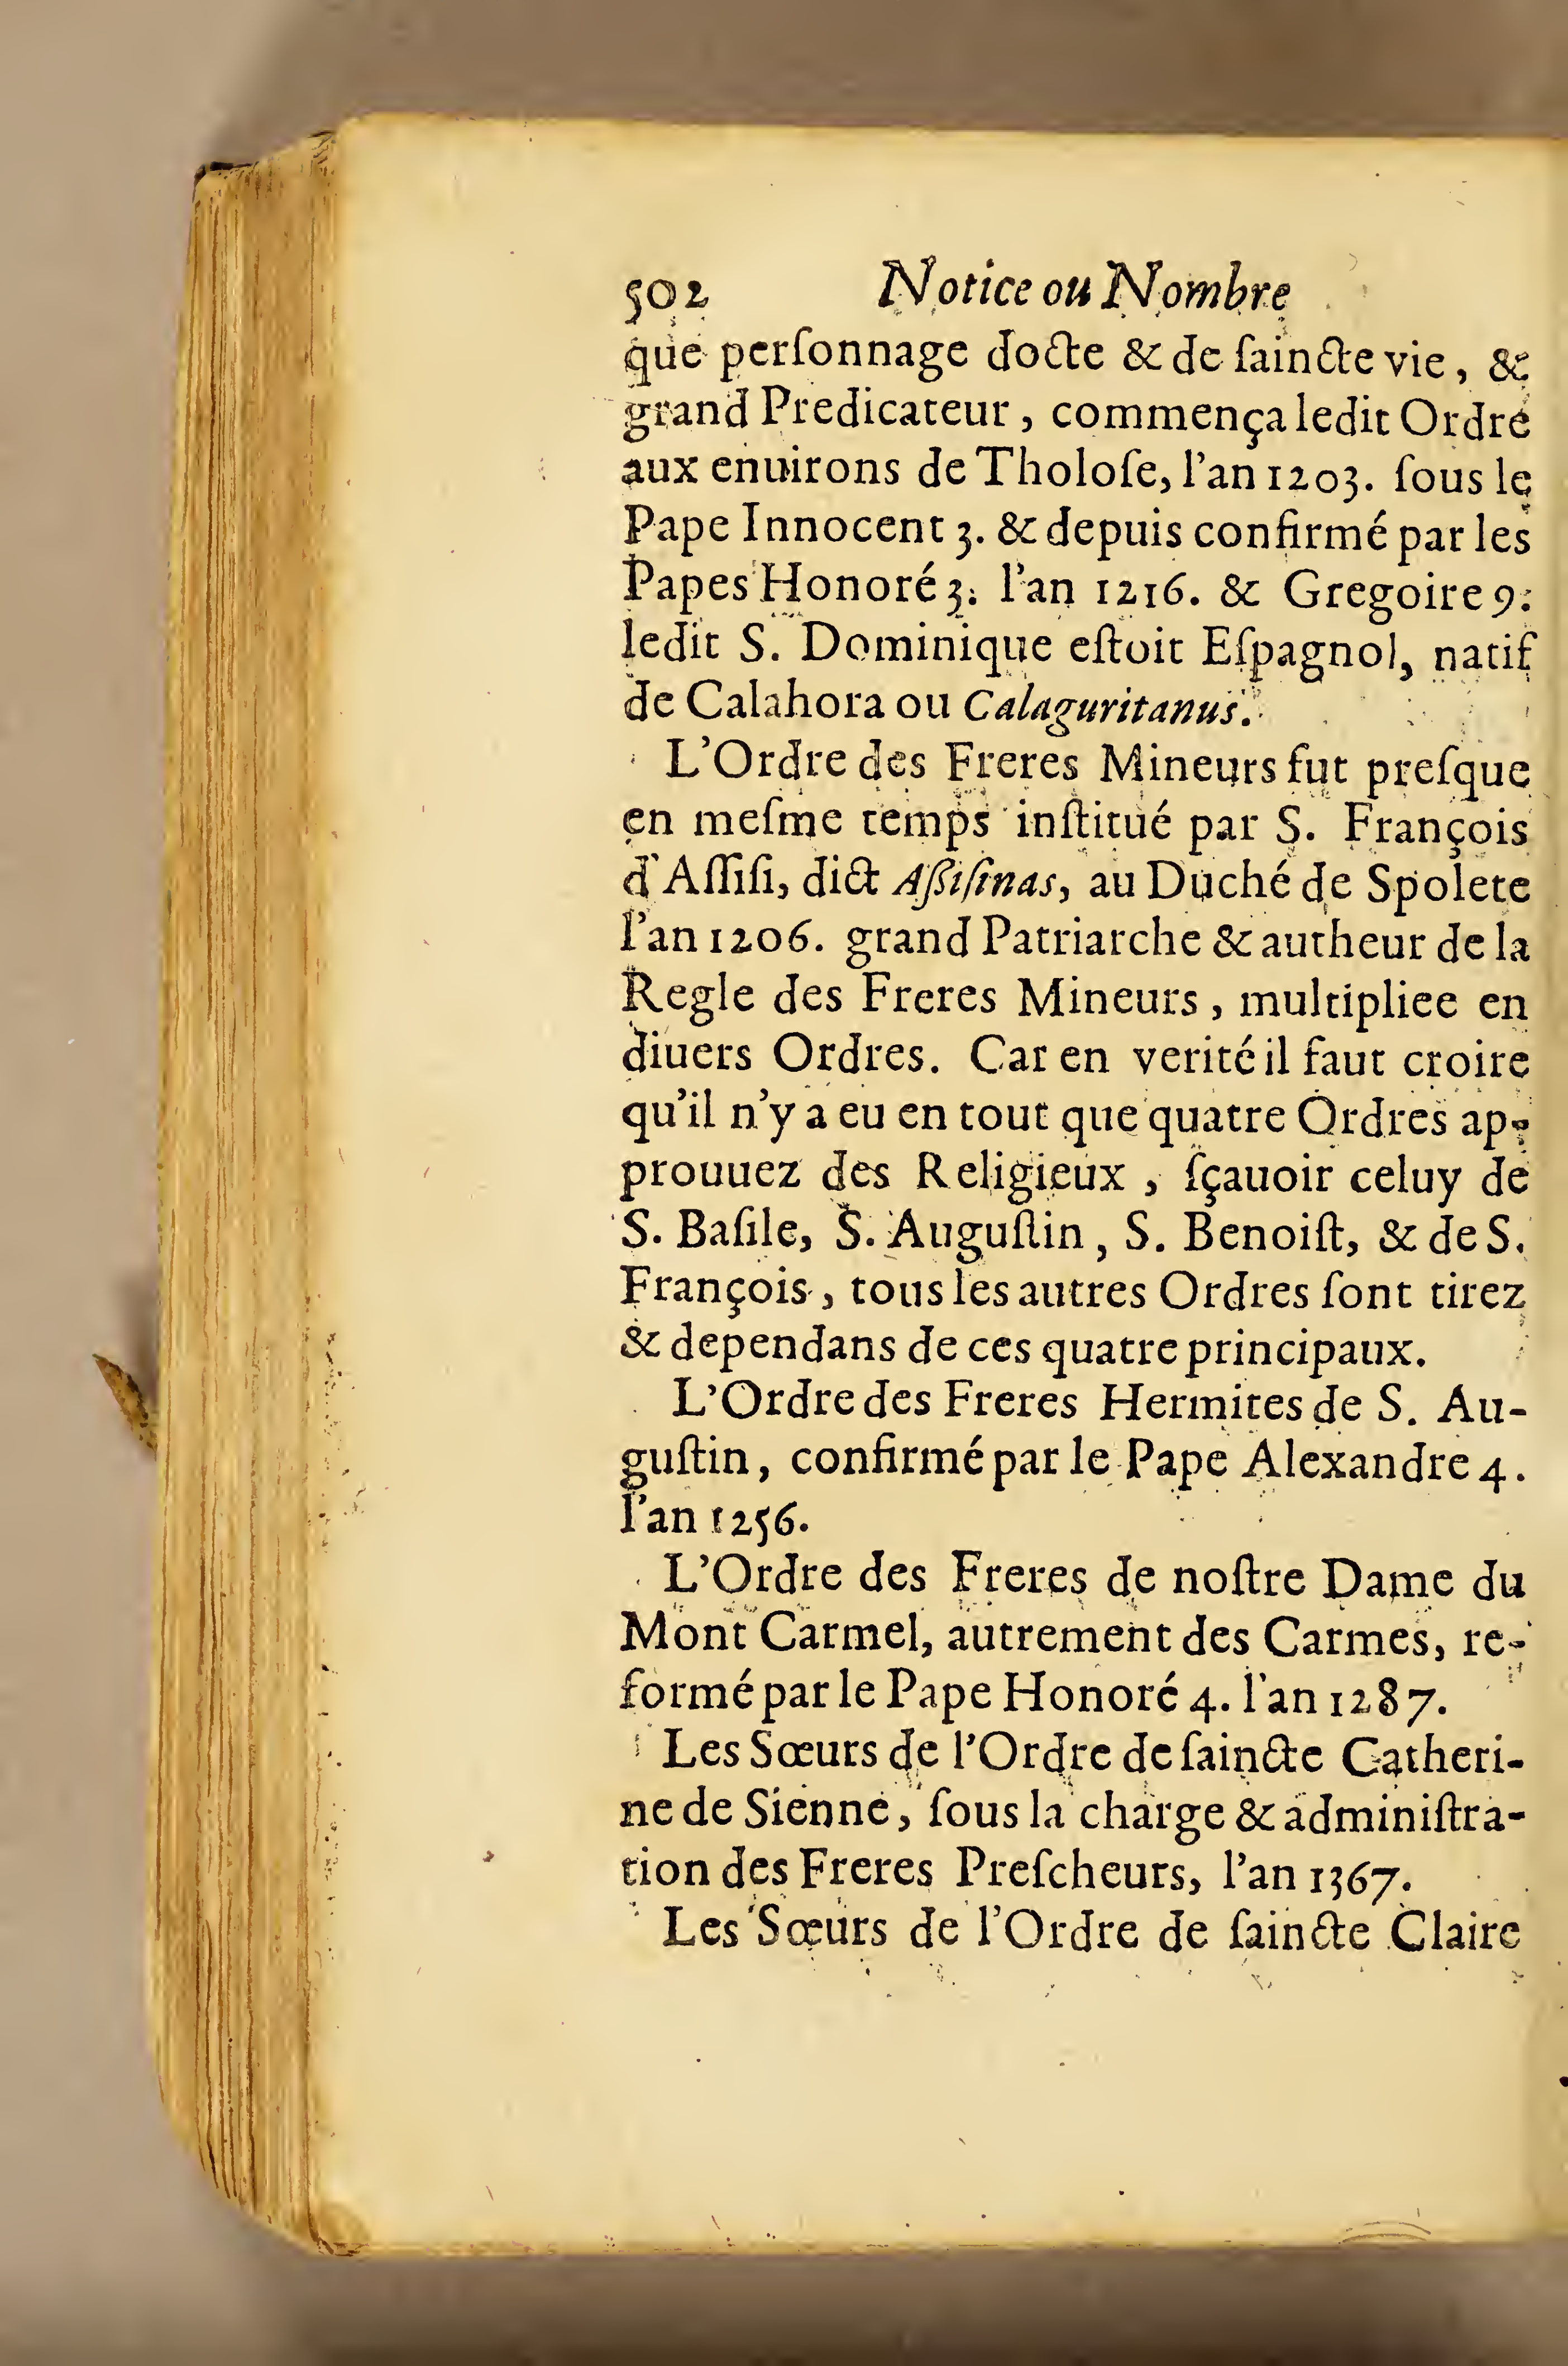 502 Notice ou Nombre
que perſonnage docte & de ſaincte vie, &
grand Predicateur, commença ledit Ordre
aux enuirons de Tholoſe, l'an 1203. ſous le
Pape Innocent 3. & depuis confirmé par les
Papes Honoré 3. l'an 1216. & Gregoire 9.
ledit S. Dominique eſtoit Eſpagnol, natif
de Calahora ou Calaguritanus.
L'Ordre des Freres Mineurs fut preſque
en meſme temps inſtitué par S. François
d'Aſſiſi, dict Aßiſinas, au Duché de Spolete
l'an 1206. grand Patriarche & autheur de la
Regle des Freres Mineurs, multipliee en
diuers Ordres. Car en verité il faut croire
qu'il n'y a eu en tout que quatre Ordres ap-
prouuez des Religieux, ſçauoir celuy de
S. Baſile, S. Auguſtin, S. Benoiſt, & de S.
François, tous les autres Ordres ſont tirez
& dependans de ces quatre principaux.
L'Ordre des Freres Hermites de S. Au-
guſtin, confirmé par le Pape Alexandre 4.
l'an 1256.
L'Ordre des Freres de noſtre Dame du
Mont Carmel, autrement des Carmes, re-
formé par le Pape Honoré 4. l'an 1287.
Les Sœurs de l'Ordre de ſaincte Catheri-
ne de Sienne, ſous la charge & adminiſtra-
tion des Freres Preſcheurs, l'an 1367.
Les Sœurs de l'Ordre de ſaincte Claire